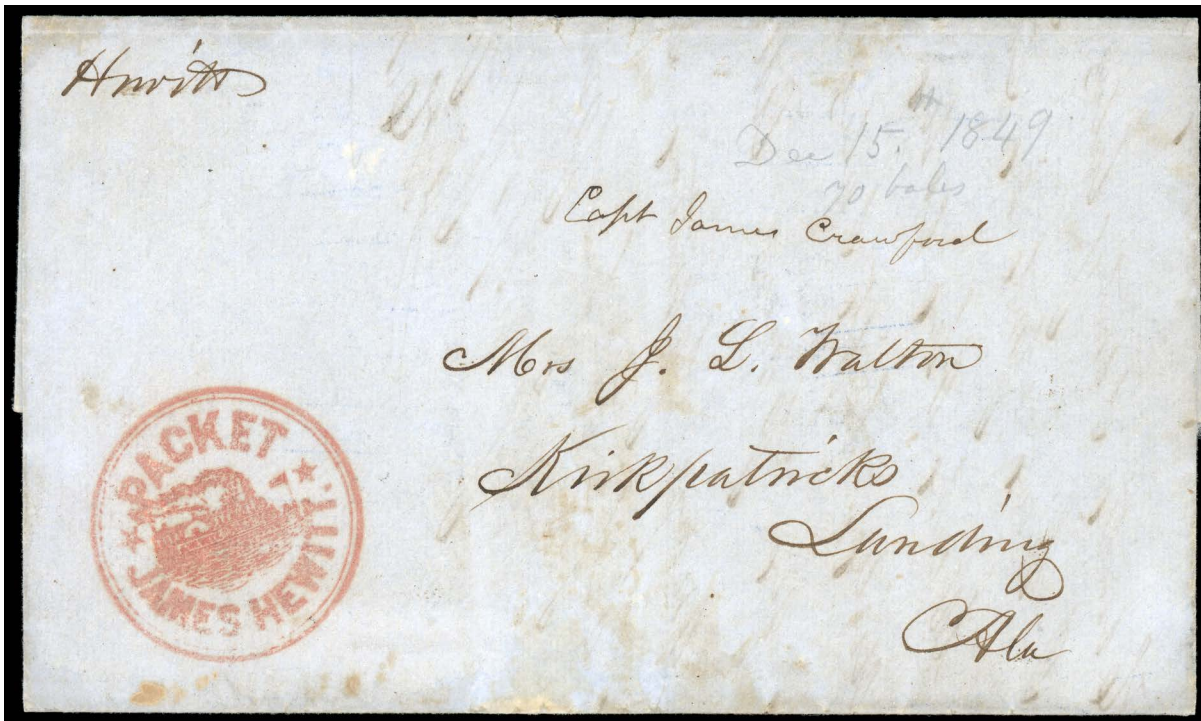 Hewitt
Dec 15th 1849
70 bales
Capt James Crawford
Mrs J. L. Walton
Kirkpatricks
Landing
Ala
PACKET
JAMES HEWITT.